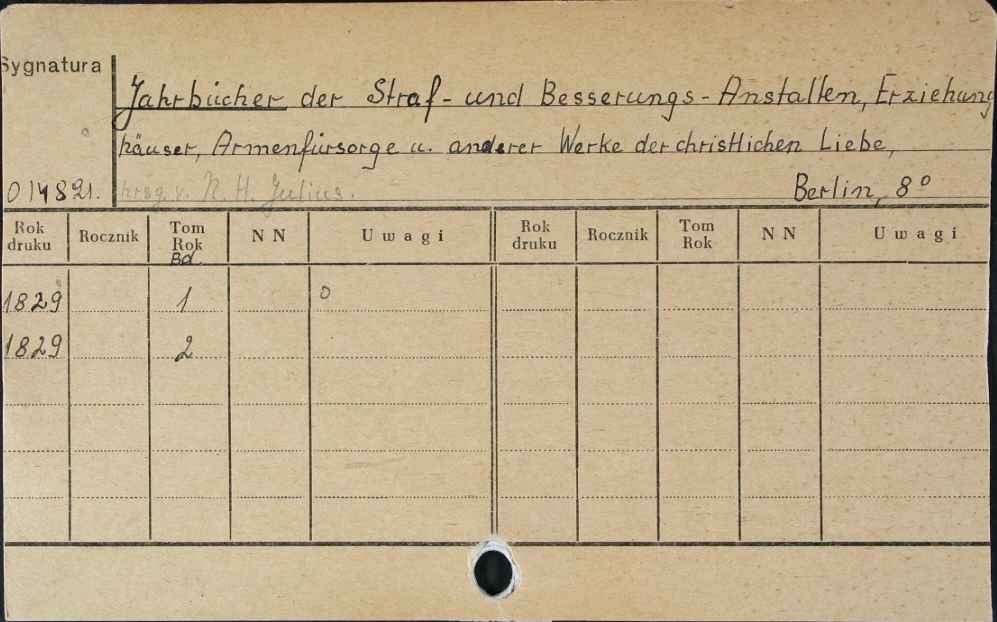 Sygnatura
Jahrbücher der Straf- und Besserungs-Anstalten, Erziehung
häuser, Armenfürsorge u. anderer Werke der christlichen Liebe,
014821. hrsg. v. N. H. Julius. Berlin, 8°
Rok druku Rocznik Tom Rok Bd. NN Uwagi Rok druku Rocznik Tom Rok NN Uwagi
1829 1 0
1829 2